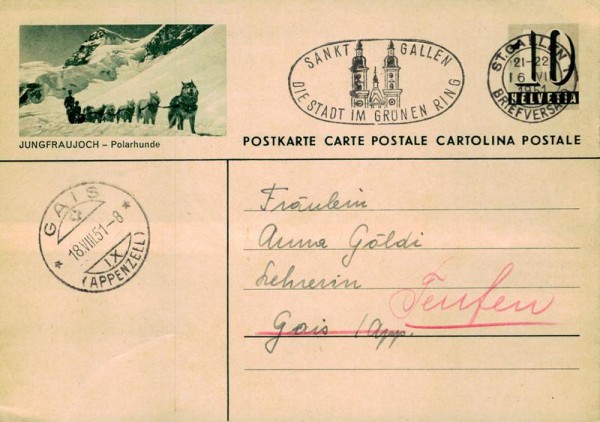 SANKT GALLEN
DIE STADT IM GRÜNEN RING
ST.GALLEN
21-22
1951
BRIEFVERSAND
10
HELVETIA
JUNGFRAUJOCH – Polarhunde
POSTKARTE CARTE POSTALE CARTOLINA POSTALE
GAIS
18.VIII.51-8
IX
(APPENZELL)
Fräulein
Anna Göldi
Lehrerin
Teufen
Gais /App.